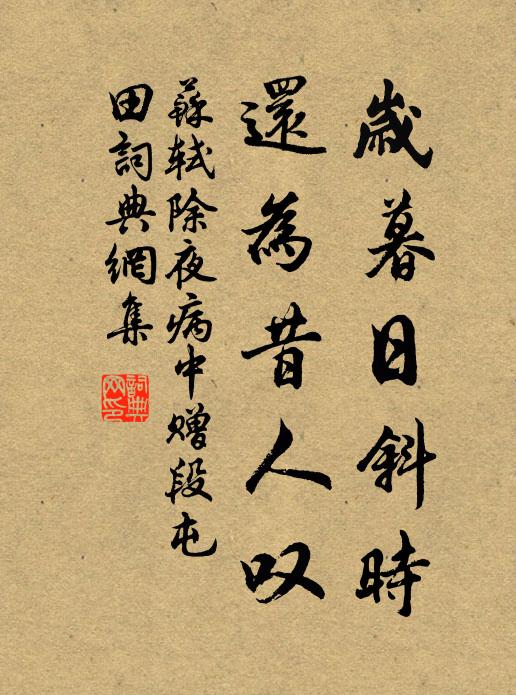 歲暮日斜時
還為昔人叹
蘇軾除夜病中赠段屯
田詞典網集
詞典
网印